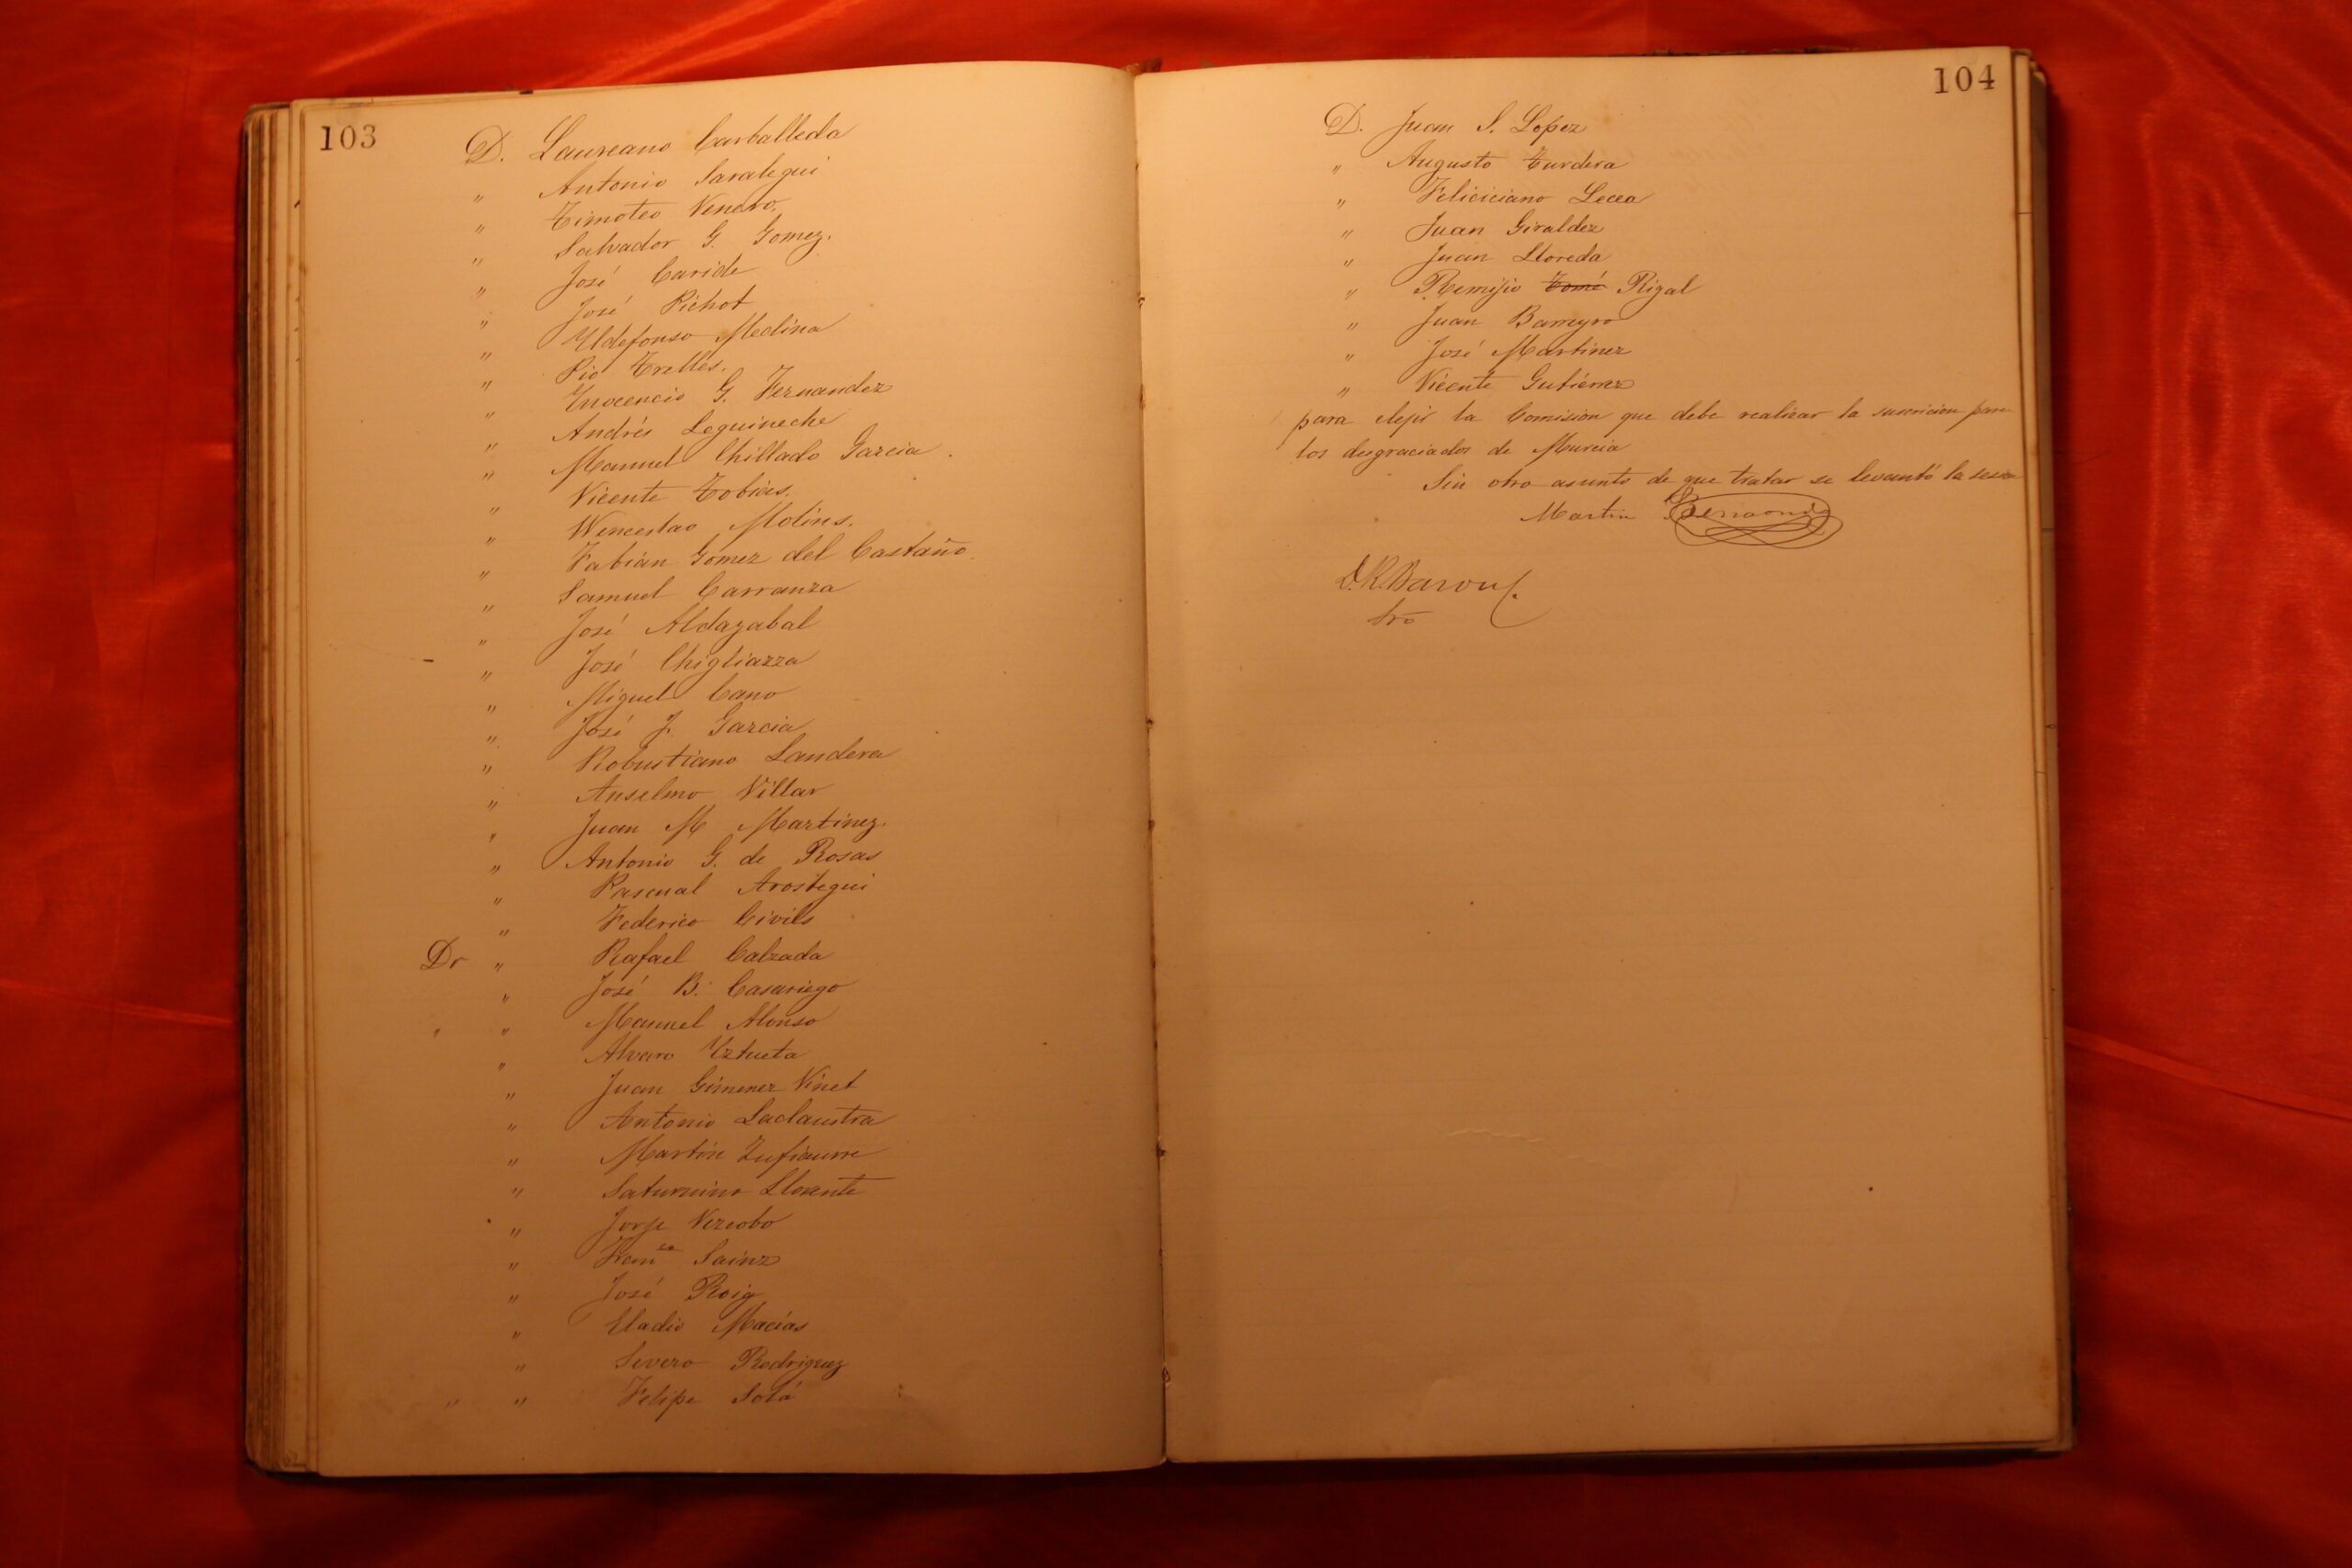 103
D. Laureano Carballeda
" Antonio Saralegui
" Timoteo Venero.
" Salvador G. Gomez.
" José Caride
" José Pichot
" Yldefonso Medina
" Pio Trelles.
" Ynocencio G. Fernandez
" Andrés Leguineche
" Manuel Chillado Garcia.
" Vicente Tobias.
" Wenceslao Molins.
" Fabián Gomez del Castaño.
" Samuel Carranza
" José Aldazabal
" José Chigliazza
" Miguel Cano
" José J. Garcia
" Robustiano Landera
" Anselmo Villar
" Juan M Martinez.
" Antonio G. de Rosas
" Pascual Arostegui
" Federico Civils
Dr " Rafael Calzada
" José B. Casariego
" " Manuel Alonso
" Alvaro Yztueta
" Juan Gimenez Vinet
" Antonio Laclaustra
" Martin Zufiaurre
" Saturnino Llorente
" Jorje Vezcobo
" Franco Sainz
" José Roig
" Eladio Macías
" Severo Rodriguez
" " Felipe Solá
104
D. Juan S. Lopez
" Augusto Turdera
" Feliciciano Lecea
" Juan Giraldez
" Juan Lloreda
" Remijio Tomé Rigal
" Juan Barreyro
" José Martinez
" Vicente Gutiérrez
para elejir la Comision que debe realizar la suscricion para
los desgraciados de Murcia
Sin otro asunto de que tratar se levantó la sesion
Martin